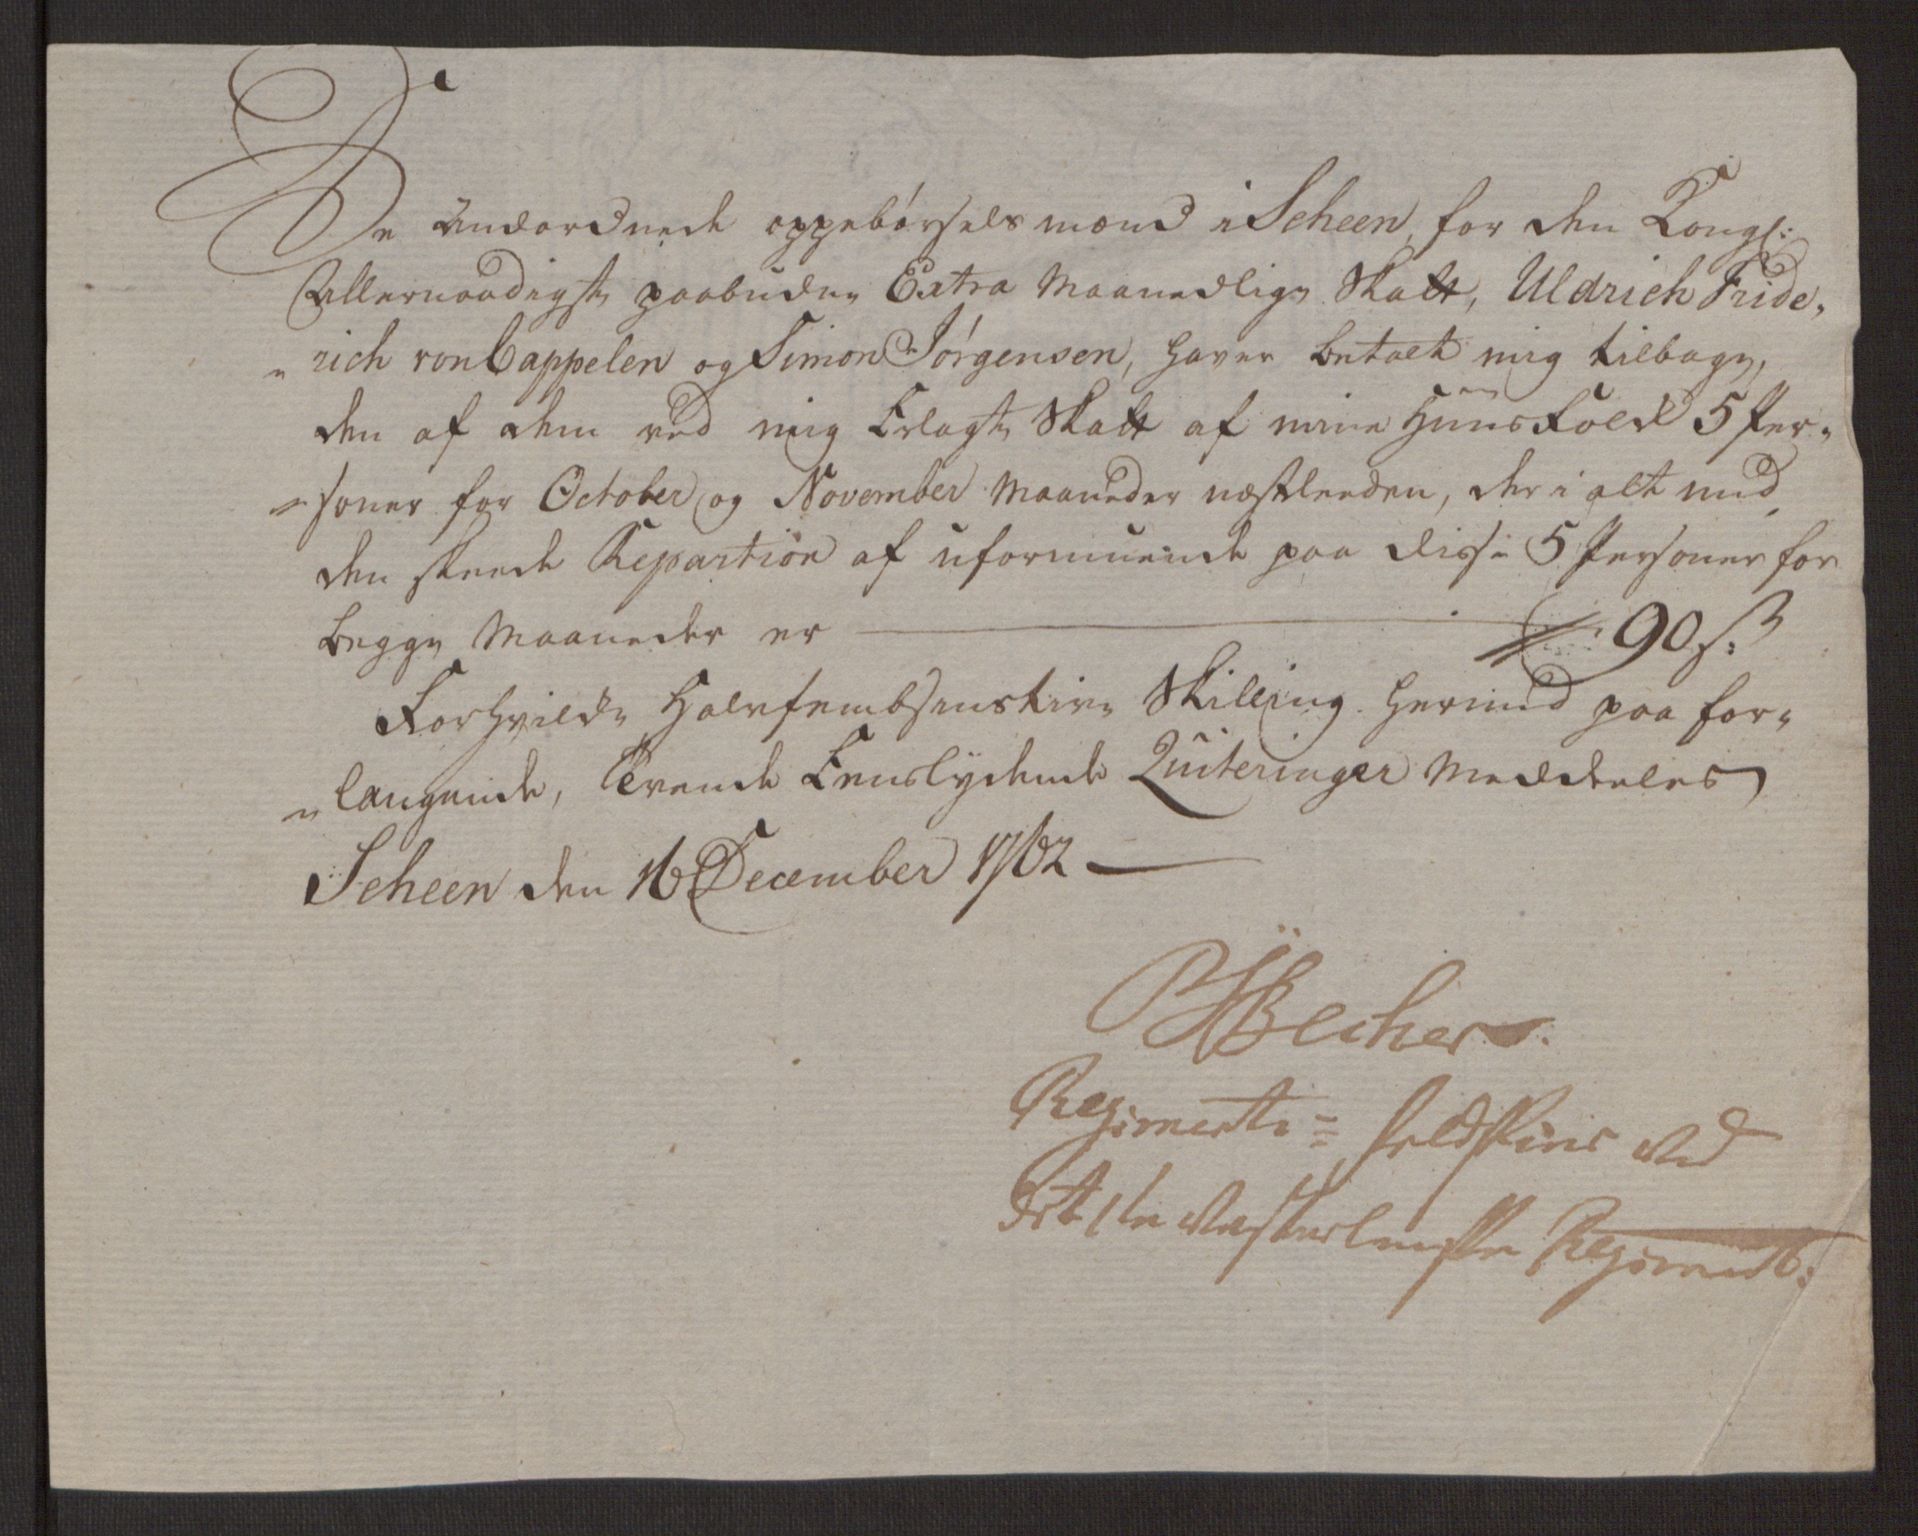 De anordnede oppebørsels mænd i Scheen, for den Kongl:
Allernaadigst paabudne Extra Maanedlige Skatt, Uldrich Fride-
-rich von Cappelen og Simon Jørgensen, haver betalt mig tilbage,
den af dem ved mig Erlagte Skatt af mine Huusfolk 5 Per-
-soner for October og November Maaneder næstleeden, der i alt med
den skeede Repartion af uformuende paa disse 5 Personer for
begge Maaneder er 90 s:
For hvilke Halvfembsenstive Skilling hermed paa for-
-langende, tvende Eenslydende Quiteringer meddeeles
Scheen den 16 December 1762
Becher
Regiments = feldskier ved
det 1te Vesterlenske Regiment: